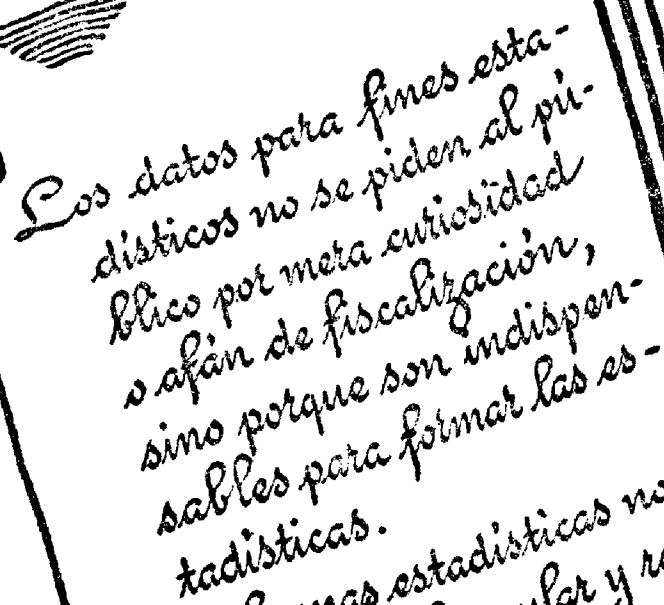 Los datos para fines esta-
dísticos no se piden al pú-
blico por mera curiosidad
o afán de fiscalización,
sino porque son indispen-
sables para formar las es-
tadísticas.
estadísticas no
y